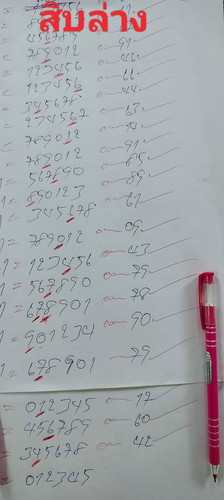 สิบล่าง
456789 91
789012 46
123456 66
123456 44
345678 63
234567 14
789012 91
789012 85
567890 89
890123 61
345678
789012 09
123456 43
567890 79
678901 78
901234 90
678901 79
= 012345 12
= 456789 60
= 345678 42
= 012345